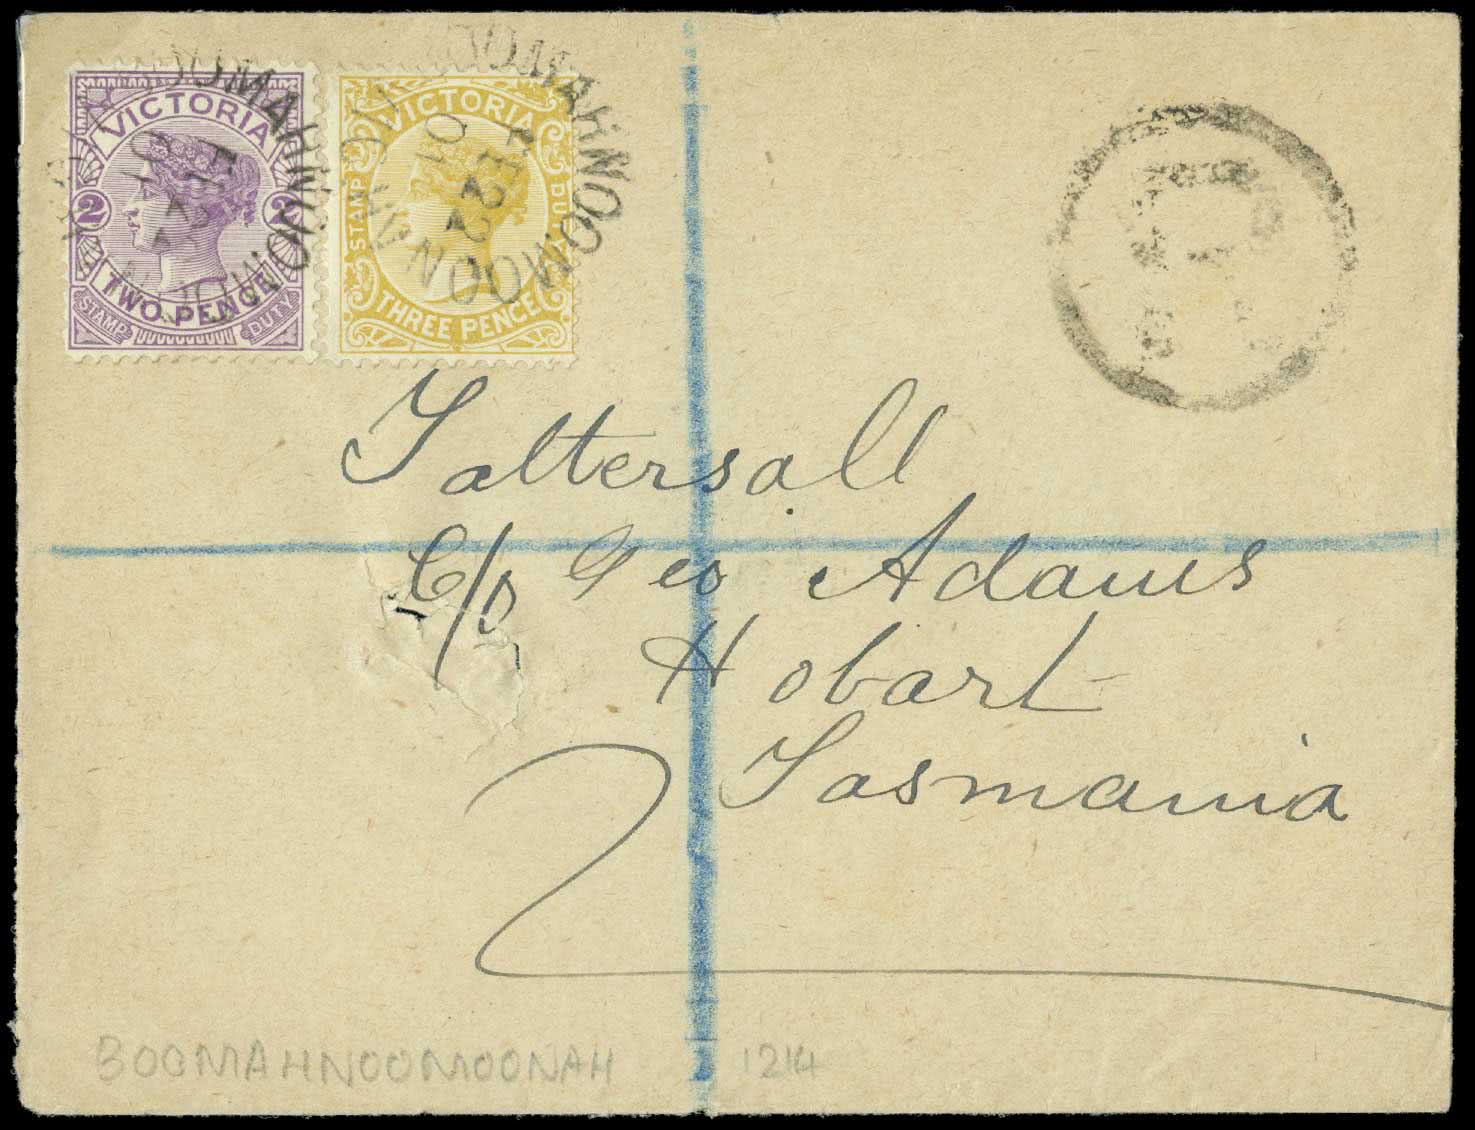 VICTORIA
2 2
TWO PENCE
STAMP DUTY
VICTORIA
STAMP DUTY
THREE PENCE
BOOMAHNOOMOONAH
FE 22
01
VIC
BOOMAHNOOMOONAH
FE 22
01
VIC
Tattersall
C/o Geo Adams
Hobart
Tasmania
BOOMAHNOOMOONAH 1214